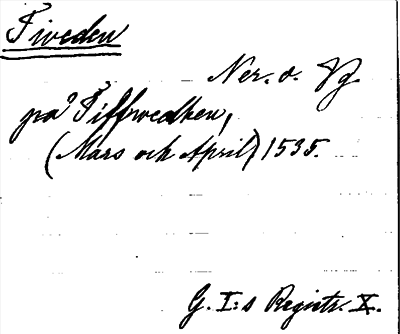 Tiveden
Ner. o. Vg
på Tiffwedhen,
(Mars och April) 1535.
G. I:s Registr. X.